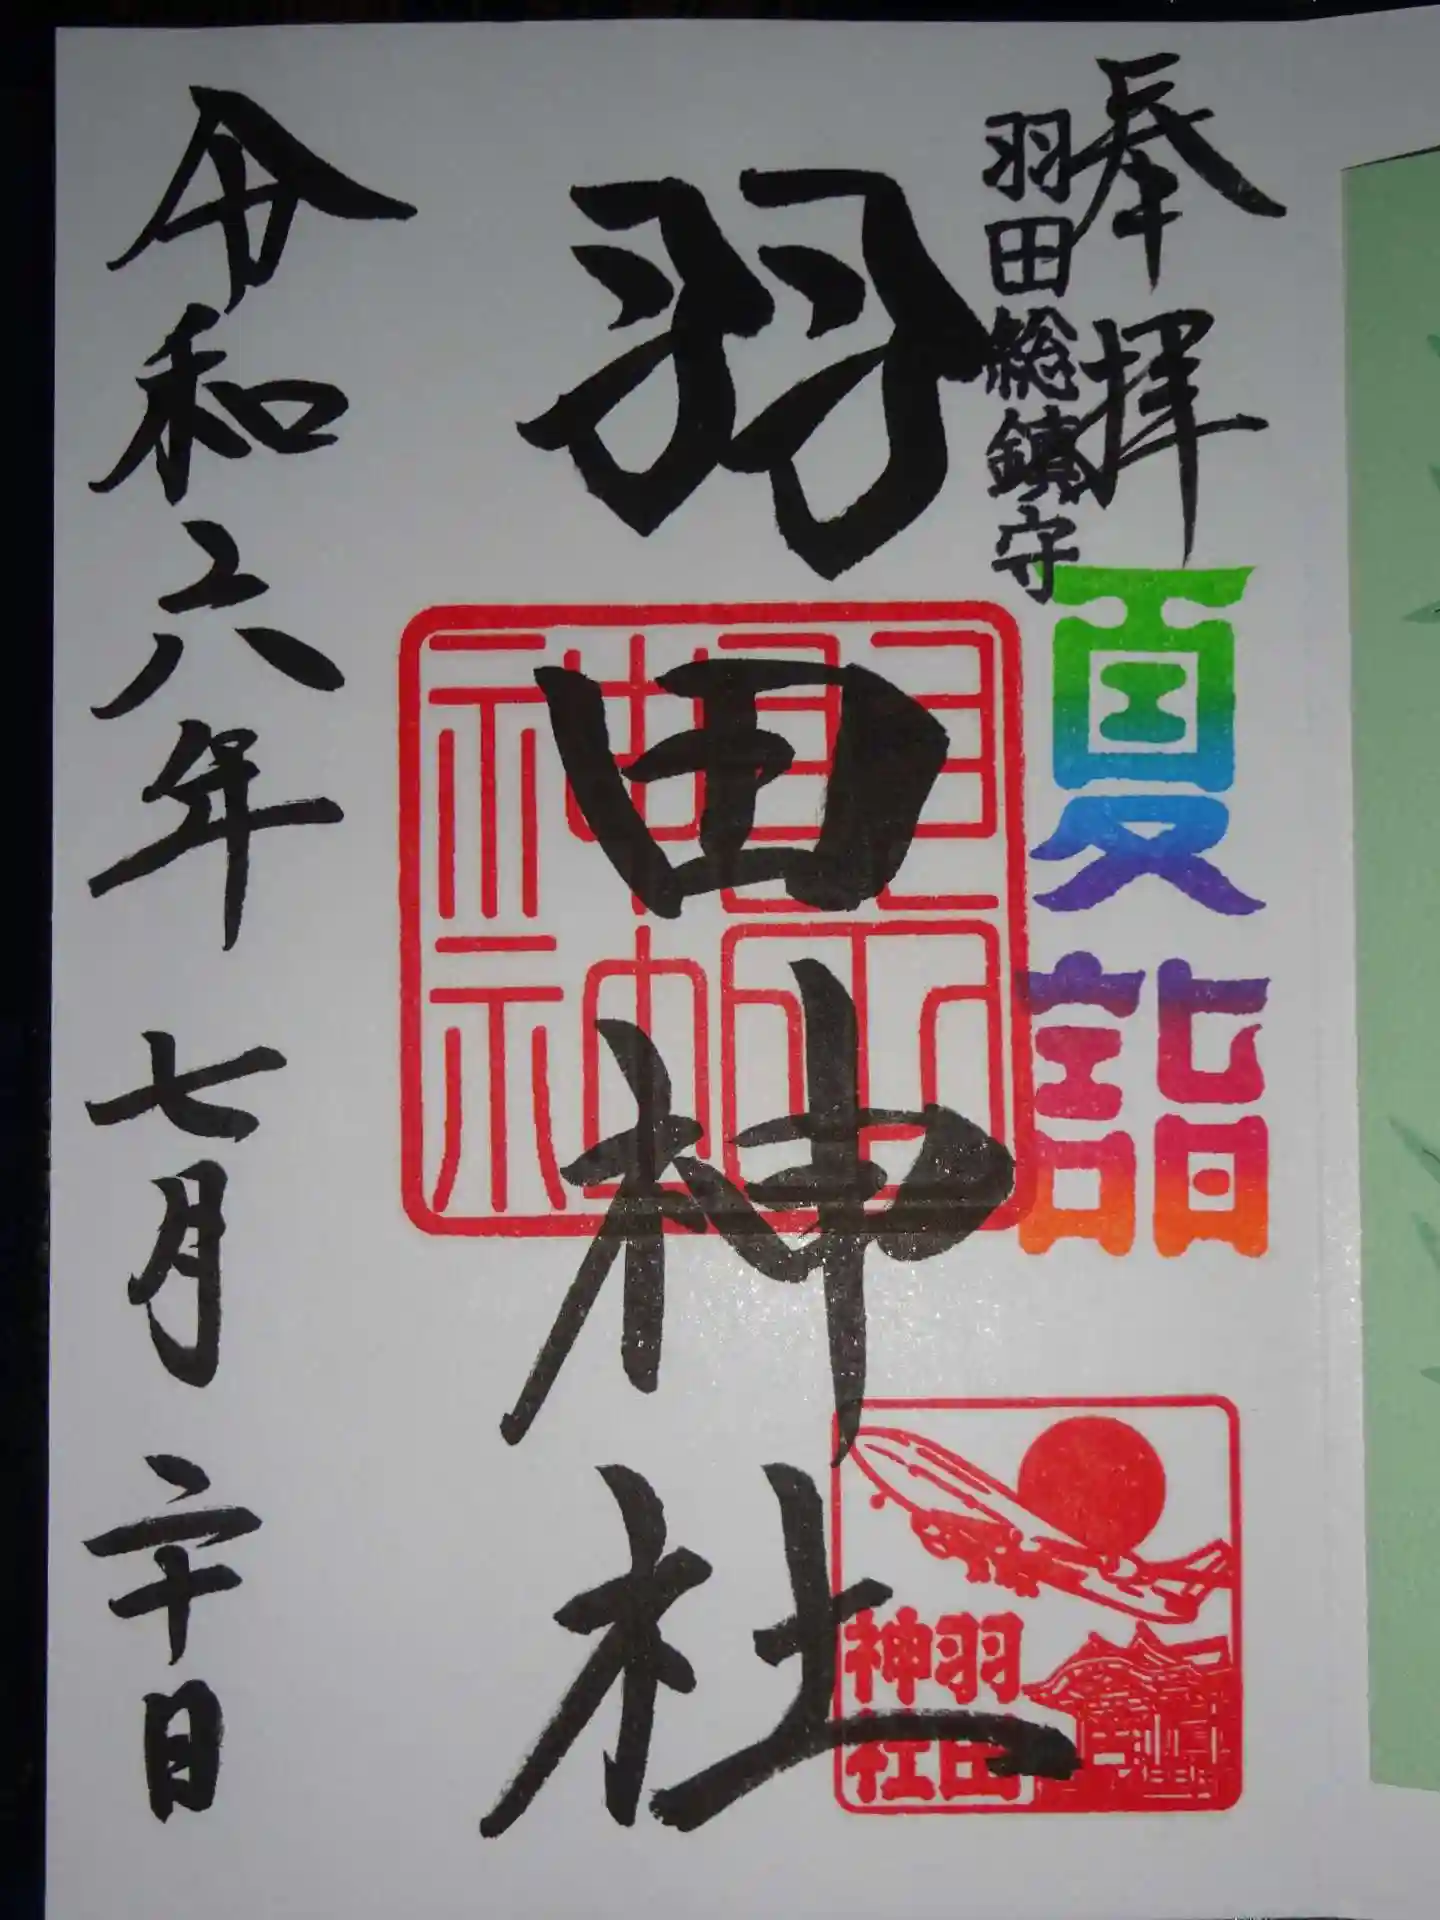 奉拝
夏詣
羽田総鎮守
羽田神社
羽田
神社
令和六年 七月 二十日